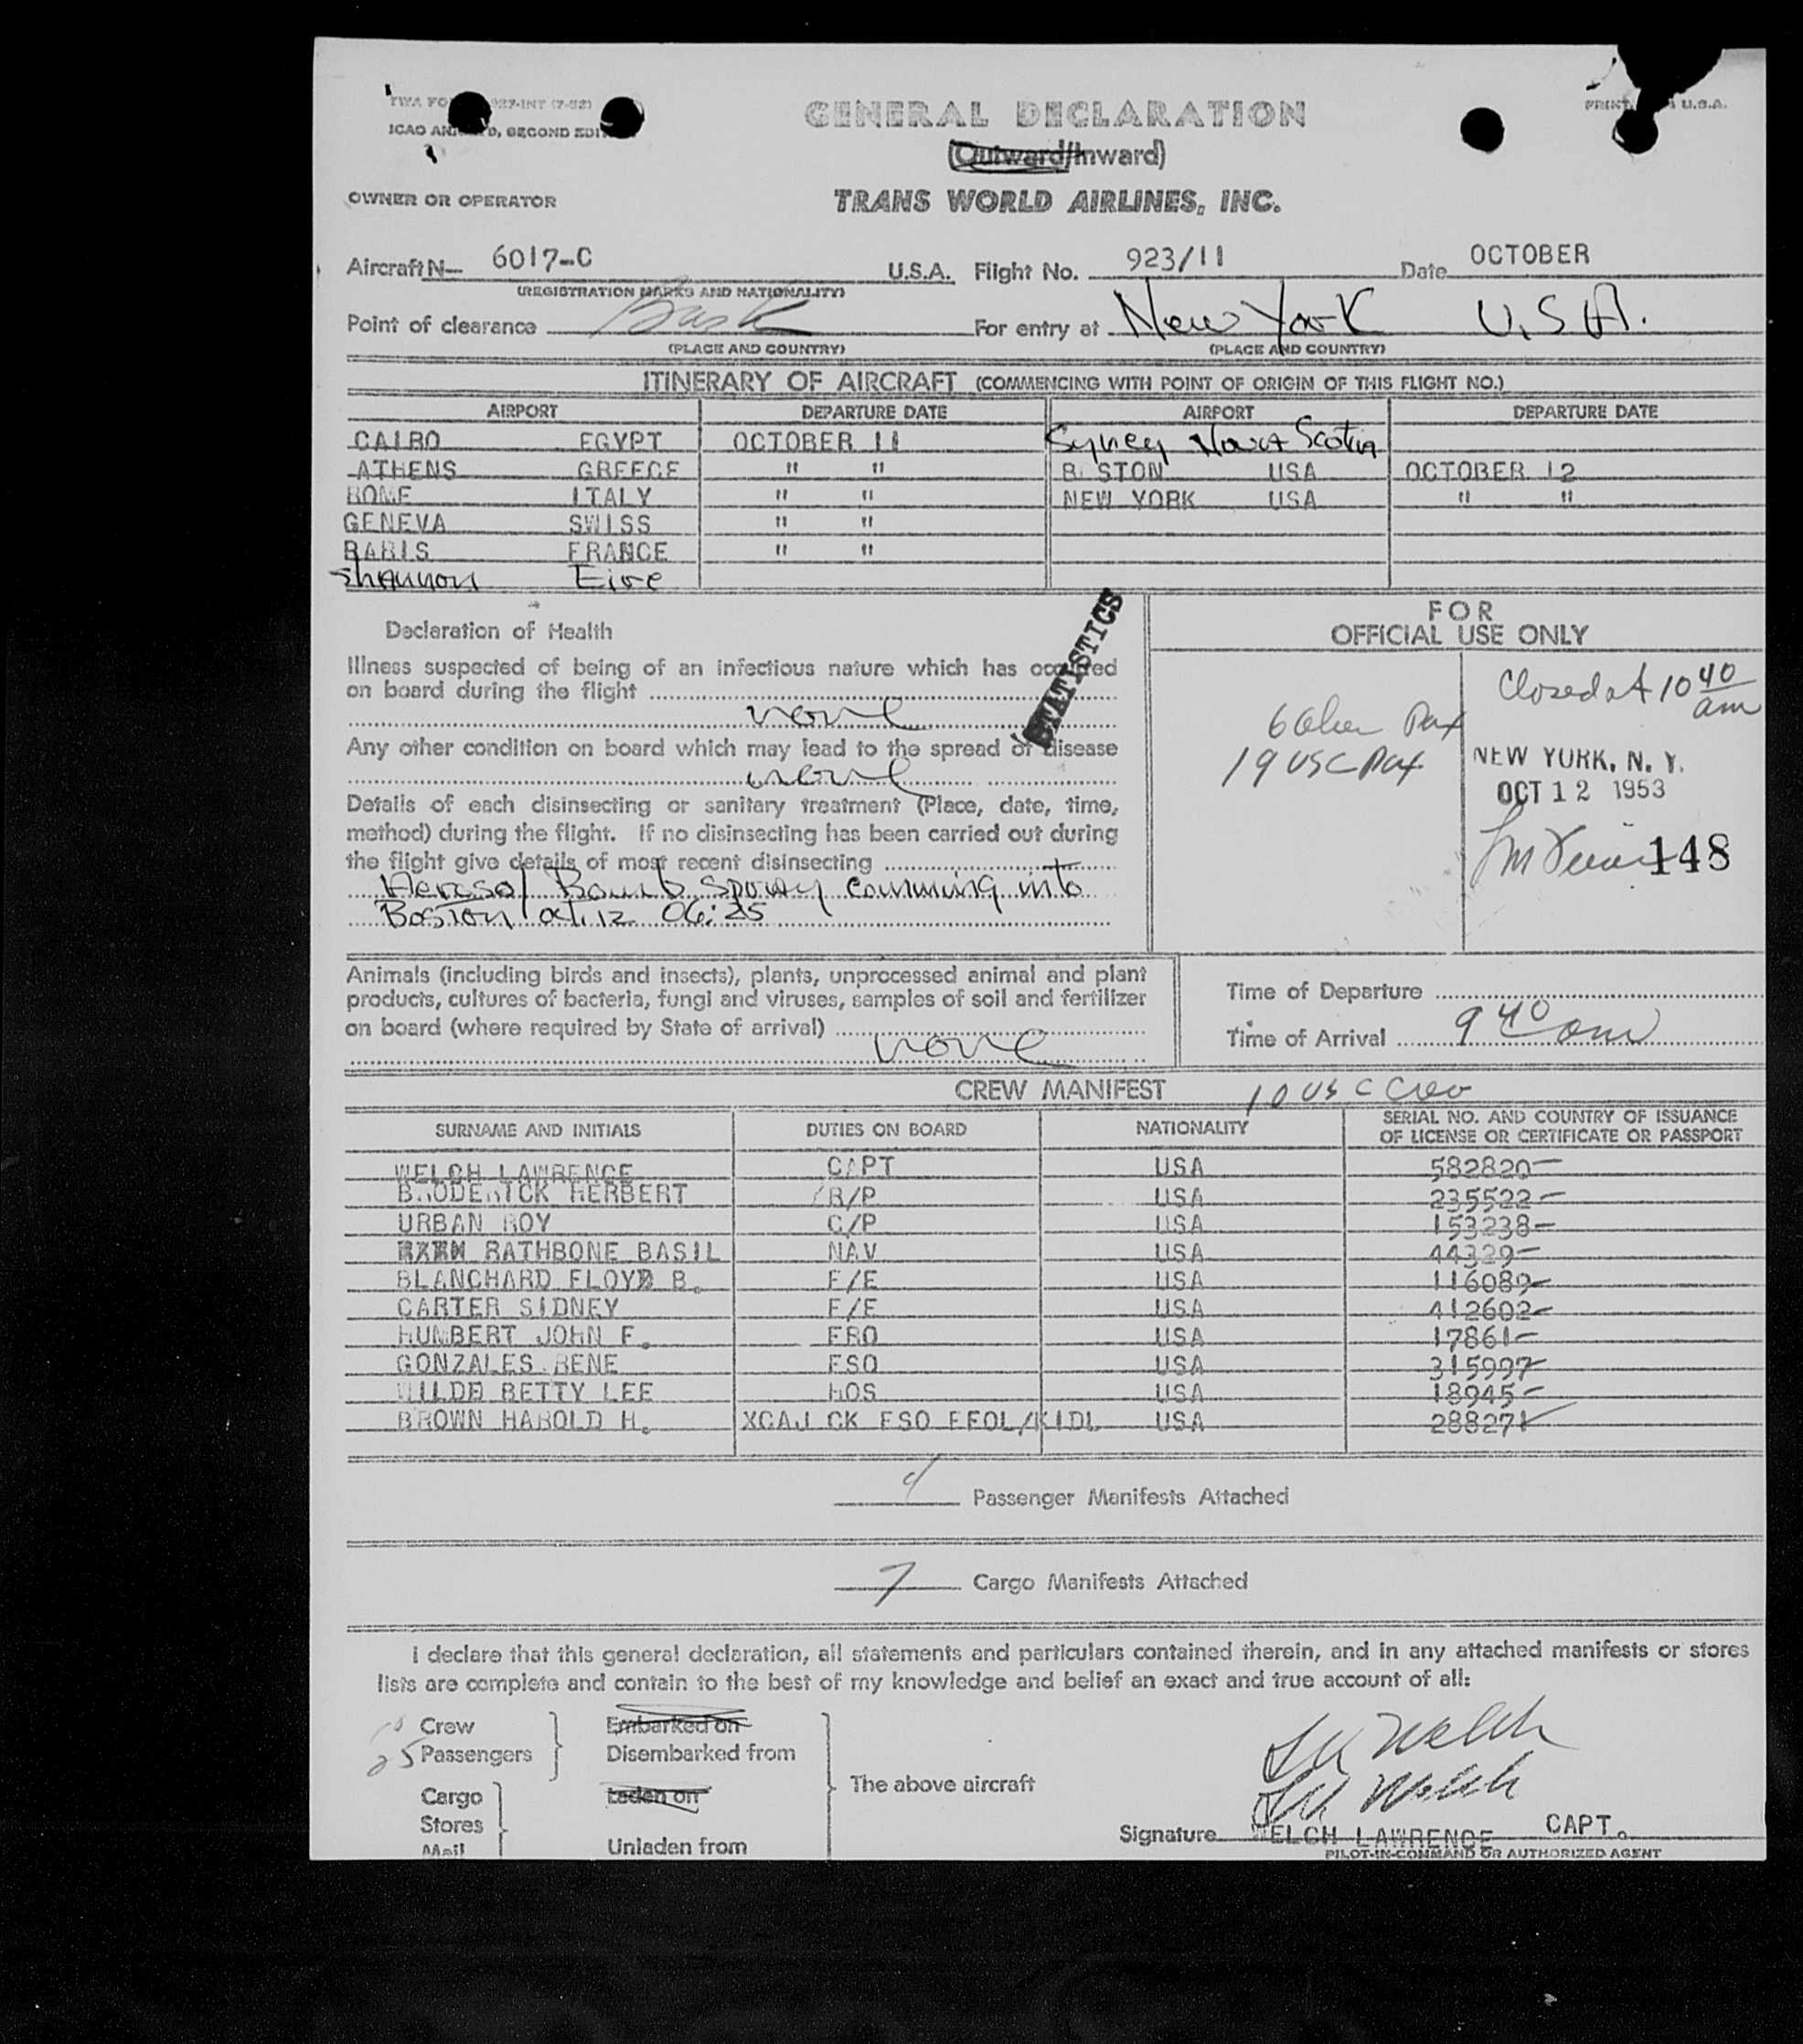 TWA FO 927-INT (7-52)
PRINT U.S.A.
ICAO AN 9, SECOND EDI
GENERAL DECLARATION
(Outward/Inward)
OWNER OR OPERATOR
TRANS WORLD AIRLINES, INC.
Aircraft N— 6017-C U.S.A. Flight No. 923/11 Date OCTOBER
(REGISTRATION MARKS AND NATIONALITY)
Point of clearance For entry at New York U.S.A.
(PLACE AND COUNTRY) (PLACE AND COUNTRY)
ITINERARY OF AIRCRAFT (COMMENCING WITH POINT OF ORIGIN OF THIS FLIGHT NO.)
AIRPORT DEPARTURE DATE AIRPORT DEPARTURE DATE
CAIRO EGYPT OCTOBER 11 Syney Nova Scotia
ATHENS GREECE " " BOSTON USA OCTOBER 12
ROME ITALY " " NEW YORK USA " "
GENEVA SWISS " "
PARIS FRANCE " "
Shannon Eire
STATISTICS
Declaration of Health
Illness suspected of being of an infectious nature which has occurred
on board during the flight
none
Any other condition on board which may lead to the spread of disease
none
Details of each disinsecting or sanitary treatment (Place, date, time,
method) during the flight. If no disinsecting has been carried out during
the flight give details of most recent disinsecting
Aerosol Bomb Spray comming into
Boston Oct. 12 06:25
FOR
OFFICIAL USE ONLY
Closed at 10 40
am
6 alien Pax
19 USC Pax
NEW YORK, N. Y.
OCT 12 1953
148
Animals (including birds and insects), plants, unprocessed animal and plant
products, cultures of bacteria, fungi and viruses, samples of soil and fertilizer
on board (where required by State of arrival)
none
Time of Departure
Time of Arrival 9 40 am
CREW MANIFEST 10 USC Crew
SURNAME AND INITIALS DUTIES ON BOARD NATIONALITY SERIAL NO. AND COUNTRY OF ISSUANCE
OF LICENSE OR CERTIFICATE OR PASSPORT
WELCH LAWRENCE CAPT USA 582820
BRODERICK HERBERT R/P USA 235522
URBAN ROY C/P USA 153238
RATHBONE BASIL NAV USA 44329
BLANCHARD FLOYD B. F/E USA 116089
CARTER SIDNEY F/E USA 412602
HUMBERT JOHN F. FRO USA 17861
GONZALES RENE FSO USA 315997
WILDE BETTY LEE HOS USA 18945
BROWN HAROLD H. XCAJ CK FSO EFOL/KIDL USA 288271
Passenger Manifests Attached
7 Cargo Manifests Attached
I declare that this general declaration, all statements and particulars contained therein, and in any attached manifests or stores
lists are complete and contain to the best of my knowledge and belief an exact and true account of all:
10 Crew Embarked on
25 Passengers Disembarked from
The above aircraft
Cargo Laden on
Stores
Mail Unladen from
LW Welch
LW Welch
Signature WELCH LAWRENCE CAPT.
PILOT-IN-COMMAND OR AUTHORIZED AGENT